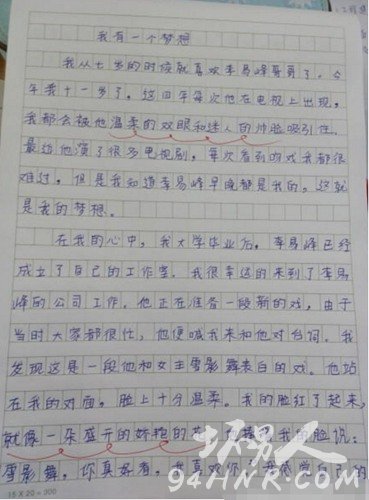 我有一个梦想
我从七岁的时候就喜欢李易峰哥哥了。今
年我十一岁了，这四年每次他在电视上出现，
我都会被他温柔的双眼和迷人的帅脸吸引住。
最近他演了很多电视剧，每次看到吻戏我都很
难过，但是我知道李易峰早晚都是我的，这就
是我的梦想。
在我的心中，我大学毕业后，李易峰已经
成立了自己的工作室。我很幸运的来到了李易
峰的公司工作。他正在准备一段新的戏，由于
当时大家都很忙，他便喊我来和他对台词。我
发现这是一段他和女主雪影舞表白的戏。他站
在我的对面，脸上十分温柔。我的脸红了起来，
就像一朵盛开的娇艳的 我的脸说：
雪影舞，你真好看，我喜欢你 自己的
坏男人
94HNR.COM
15 X 20 = 300
工程